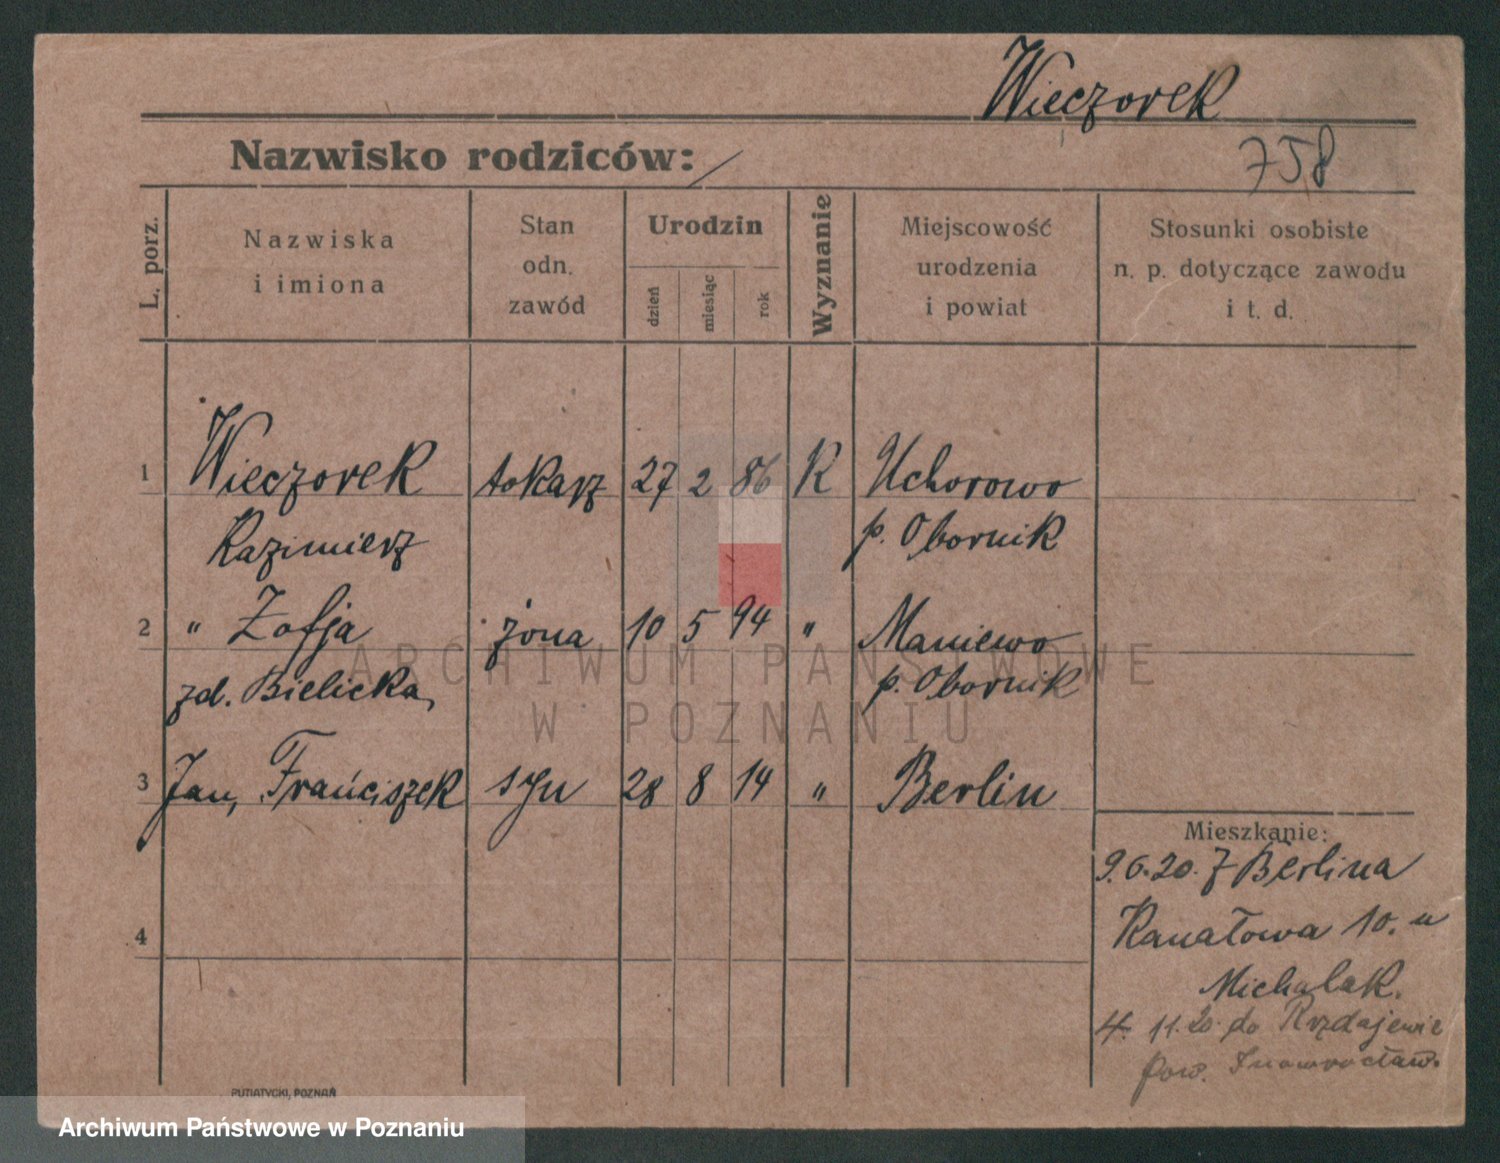 Wieczorek
Nazwisko rodziców: /
758
L. porz.
Nazwiska
i imiona
Stan
odn.
zawód
Urodzin
dzień
miesiąc
rok
Wyznanie
Miejscowość
urodzenia
i powiat
Stosunki osobiste
n. p. dotyczące zawodu
i t. d.
1 Wieczorek tokarz 27 2 86 K Uchorowo
Kazimierz p. Obornik
2 " Zofja żona 10 5 94 " Maniewo
zd. Bielicka, p. Obornik
3 Jan, Franciszek syn 28 8 14 " Berlin
Mieszkanie:
9.6.20. z Berlina
4
Kanałowa 10. u
Michalak.
4. 11. 20. do
pow. Inowrocław.
PUTIATYCKI, POZNAŃ
ARCHIWUM PAŃSTWOWE
W POZNANIU
Archiwum Państwowe w Poznaniu